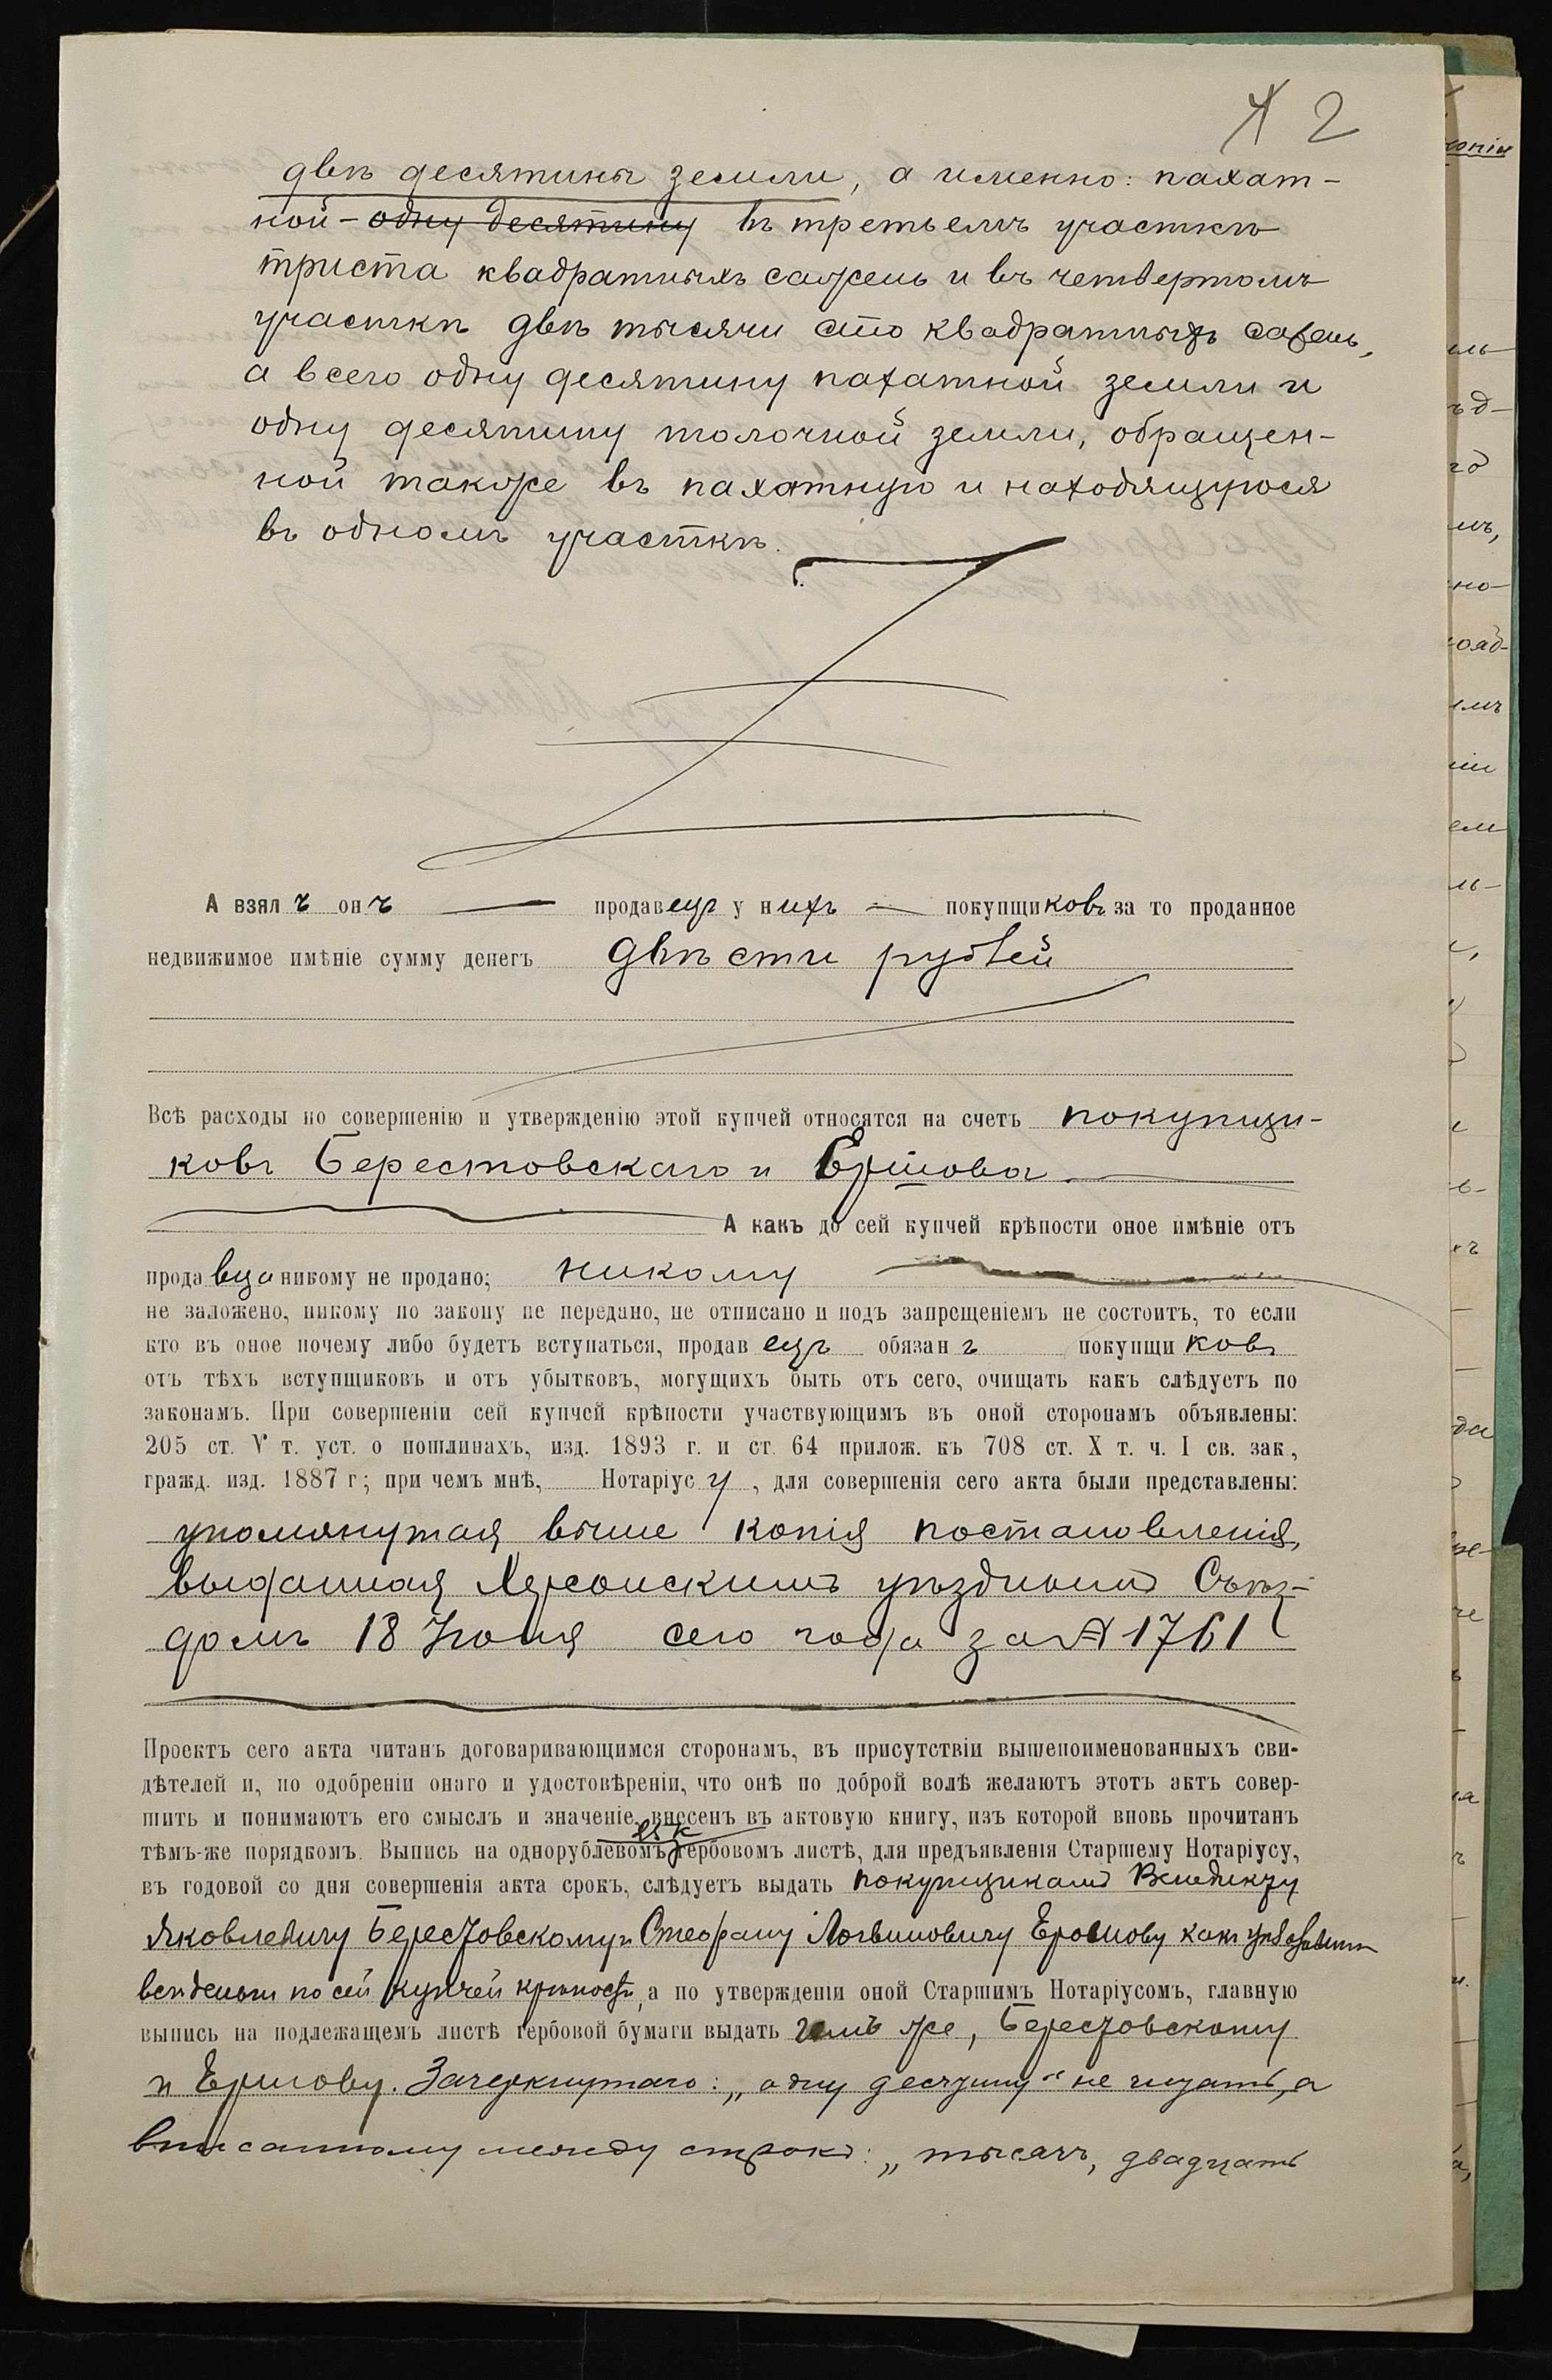 2
двѣ десятины земли, а именно: пахат-
ной - одну десятину въ третьемъ участкѣ
триста квадратныхъ сажень и въ четвертомъ
участкѣ двѣ тысячи сто квадратныхъ сажень,
а всего одну десятину пахатной земли и
одну десятину толочной земли, обращен-
ной также въ пахатную и находящуюся
въ одномъ участкѣ.
А взялъ онъ продавецъ у нихъ покупщиковъ за то проданное
недвижимое имѣніе сумму денегъ двѣсти рублей
Всѣ расходы по совершенію и утвержденію этой купчей относятся на счетъ покупщи-
ковъ Берестовскаго и Ершова
А какъ до сей купчей крѣпости оное имѣніе отъ
продавца никому не продано; никому
не заложено, никому по закону не передано, не отписано и подъ запрещеніемъ не состоитъ, то если
кто въ оное почему либо будетъ вступаться, продавецъ обязанъ покупщиковъ
отъ тѣхъ вступщиковъ и отъ убытковъ, могущихъ быть отъ сего, очищать какъ слѣдуетъ по
законамъ. При совершеніи сей купчей крѣпости участвующимъ въ оной сторонамъ объявлены:
205 ст. V т. уст. о пошлинахъ, изд. 1893 г. и ст. 64 прилож. къ 708 ст. X т. ч. I св. зак.,
гражд. изд. 1887 г; при чемъ мнѣ, Нотаріусу, для совершенія сего акта были представлены:
упомянутая выше копія постановленія,
выданная Херсонскимъ уѣзднымъ Съѣз-
домъ 18 Іюня сего года за № 1761
Проектъ сего акта читанъ договаривающимся сторонамъ, въ присутствіи вышепоименованныхъ сви-
дѣтелей и, по одобреніи онаго и удостовѣреніи, что онѣ по доброй волѣ желаютъ этотъ актъ совер-
шить и понимаютъ его смыслъ и значеніе, внесенъ въ актовую книгу, изъ которой вновь прочитанъ
тѣмъ-же порядкомъ. Выпись на однорублевомъ гербовомъ листѣ, для предъявленія Старшему Нотаріусу,
въ годовой со дня совершенія акта срокъ, слѣдуетъ выдать покупщикамъ Венедикту
Яковлевичу Берестовскому и Стефану Логвиновичу Ершову какъ
деньги по сей купчей крѣпости, а по утвержденіи оной Старшимъ Нотаріусомъ, главную
выпись на подлежащемъ листѣ гербовой бумаги выдать имъ же, Берестовскому
и Ершову. Зачеркнутаго: „одну десятину" не читать, а
вписанному между строкъ: „тысячъ, двадцать